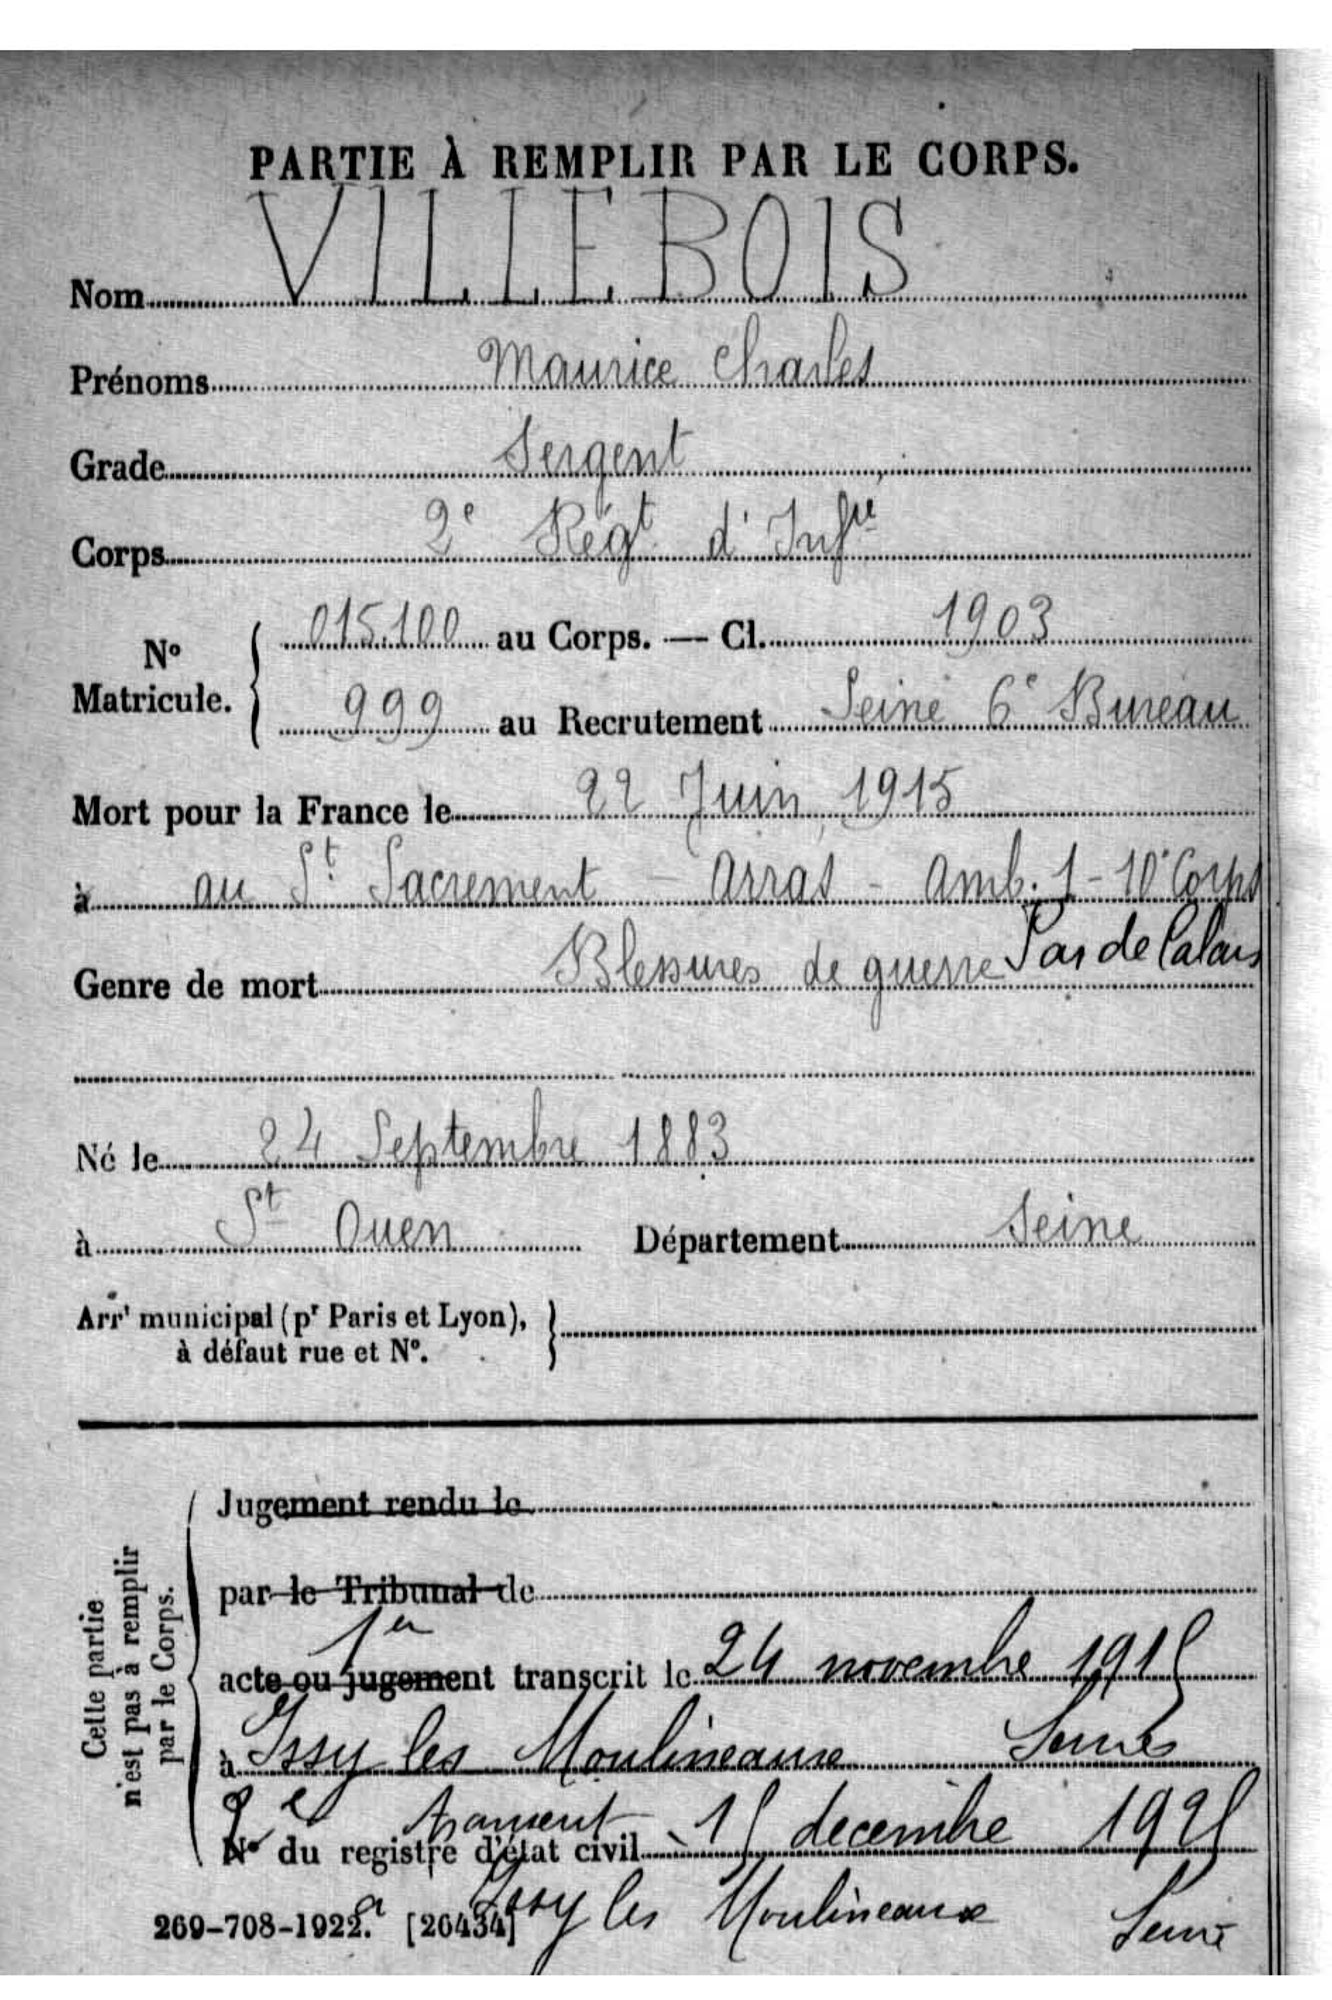 PARTIE À REMPLIR PAR LE CORPS.
Nom VILLEBOIS
Prénoms Maurice Charles
Grade Sergent
Corps 2e Régt d'Infrie
No Matricule. { 015.100 au Corps. — Cl. 1903
999 au Recrutement Seine 6e Bureau
Mort pour la France le 22 Juin 1915
à au St Sacrement - Arras - Amb. 1 - 10e Corps
Pas de Calais
Genre de mort Blessures de guerre
Né le 24 Septembre 1883
à St Ouen Département Seine
Arrt municipal (pr Paris et Lyon),
à défaut rue et No. }
Celle partie
n'est pas à remplir
par le Corps.
Jugement rendu le
par le Tribunal de
1er
acte ou jugement transcrit le 24 novembre 1915
à Issy les Moulineaux Seine
2e transcrit 15 decembre 1925
No du registre d'état civil
à Issy les Moulineaux Seine
269-708-1922. [26434]